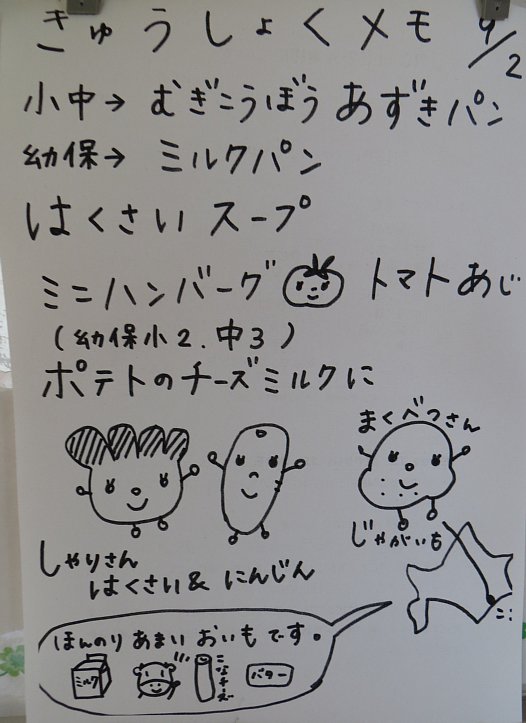 きゅうしょくメモ 9/2
小中→ むぎこうぼう あずきパン
幼保→ ミルクパン
はくさい スープ
ミニハンバーグ トマトあじ
(幼保小2.中3)
ポテトのチーズミルクに
まくべつさん
じゃがいも
しゃりさん
はくさい& にんじん
ここ
ほんのり あまい おいもでーす。
ミルク
こなチーズ
バター